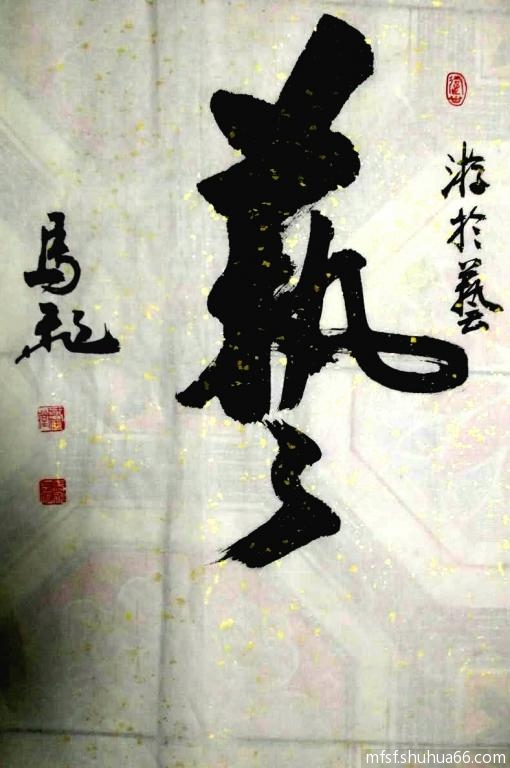 游於藝
藝
馬龍
mfsf.shuhua66.com